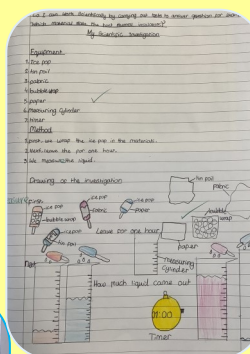 L.O I can work Scientifically by carrying out tests to answer question for example
"which material makes the best thermal insulator?"
My Scientific Investigation
Equipment
1. Ice pop
2. tin foil
3. fabric
4. bubble wrap
5. paper
6. measuring Cylinder
7. timer
Method
1. first, we wrap the ice pop in the material.
2. Next, leave the for one hour.
3. We measure the liquid.
Drawing of the investigation
tin foil
fabric
First
ice pop
bubble wrap
ice pop
fabric
ice pop
paper
ice pop
tin foil
Leave for one hour
bubble
wrap
paper
measuring
Cylinder
How much liquid came out
01:00
Timer